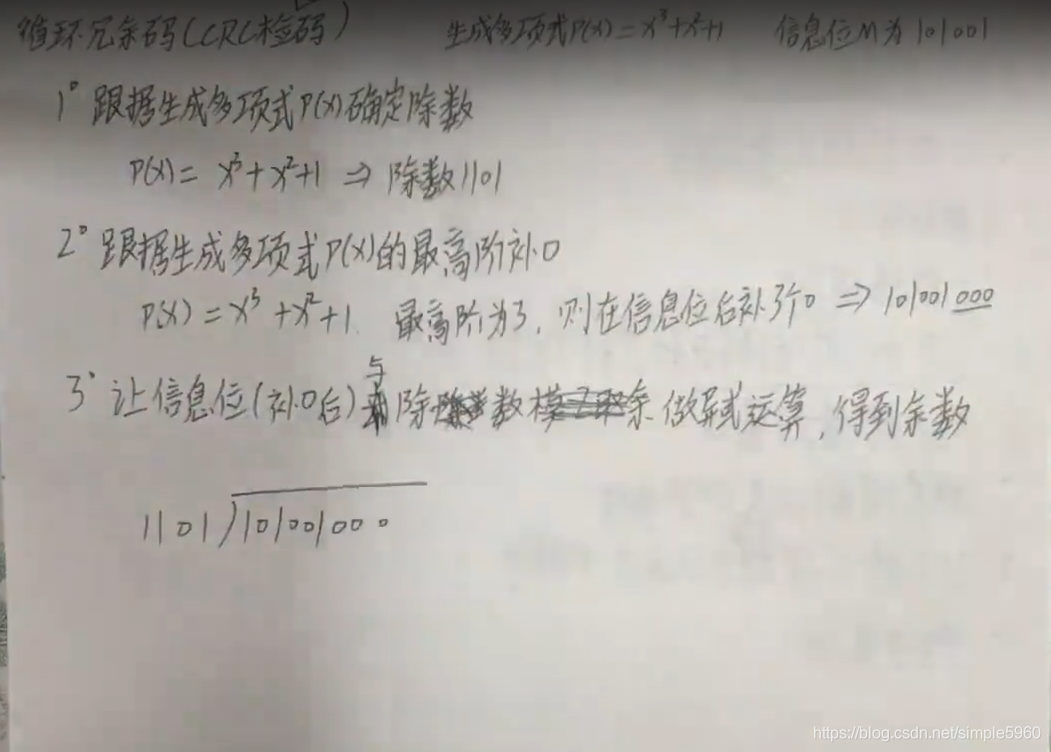 循环冗余码(CRC检码) 生成多项式P(x)=x³+x²+1 信息位M为101001
1° 跟据生成多项式P(x)确定除数
P(x)= x³+x²+1 ⇒ 除数1101
2° 跟据生成多项式P(x)的最高阶补0
P(x)=x³+x²+1. 最高阶为3,则在信息位后补3个0 ⇒ 101001000
3° 让信息位(补0后)与除数做异或运算,得到余数
1101)101001000
https://blog.csdn.net/simple5960